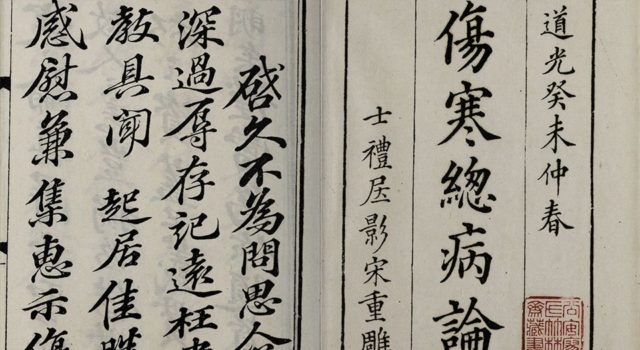 道光癸未仲春
傷寒緫病論
士禮居影宋重雕
啓久不為問思企
深過辱存記遠枉
教具聞 起居佳勝
感慰兼集惠示傷